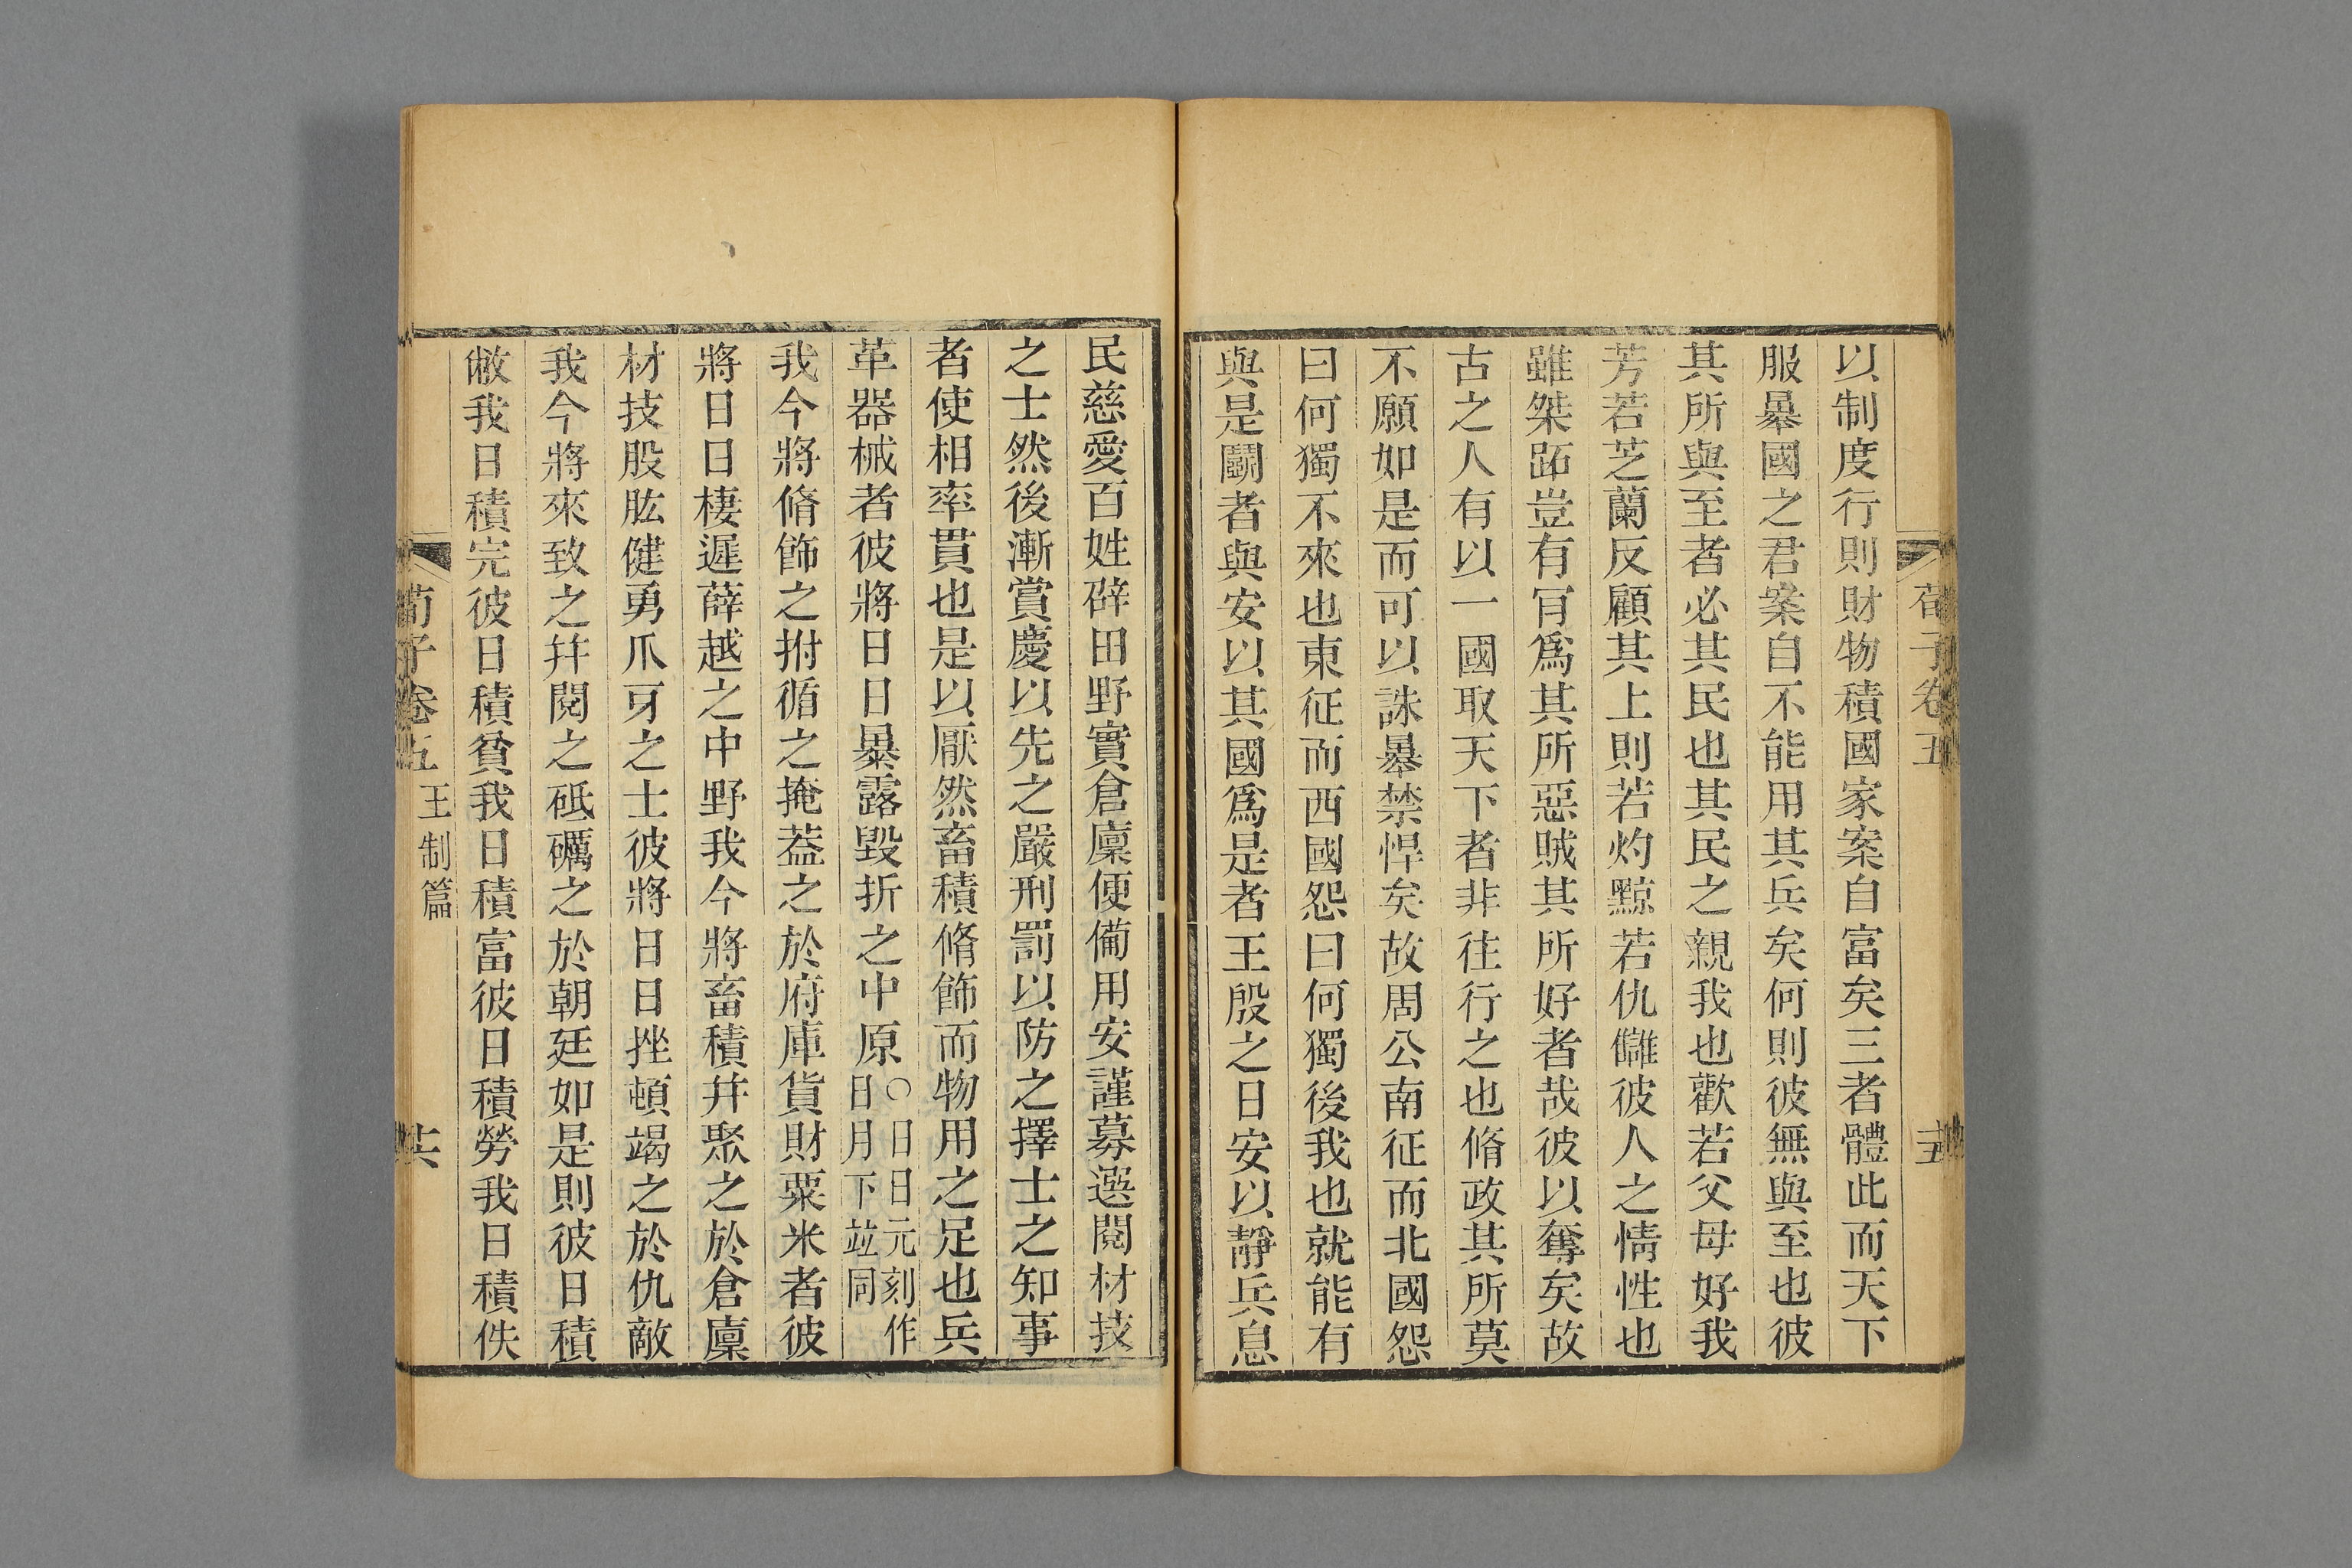 荀子卷五
十五
以制度行則財物積國家案自富矣三者體此而天下
服暴國之君案自不能用其兵矣何則彼無與至也彼
其所與至者必其民也其民之親我也歡若父母好我
芳若芝蘭反顧其上則若灼黥若仇讎彼人之情性也
雖桀跖豈有肎爲其所惡賊其所好者哉彼以奪矣故
古之人有以一國取天下者非往行之也脩政其所莫
不願如是而可以誅暴禁悍矣故周公南征而北國怨
曰何獨不來也東征而西國怨曰何獨後我也就能有
與是鬭者與安以其國爲是者王殷之日安以靜兵息
民慈愛百姓辟田野實倉廩便備用安謹募選閱材技
之士然後漸賞慶以先之嚴刑罰以防之擇士之知事
者使相率貫也是以厭然畜積脩飾而物用之足也兵
革器械者彼將日日暴露毀折之中原○日日元刻作日月下竝同
我今將脩飾之拊循之掩葢之於府庫貨財粟米者彼
將日日棲遲薛越之中野我今將畜積幷聚之於倉廩
材技股肱健勇爪牙之士彼將日日挫頓竭之於仇敵
我今將來致之幷閱之砥礪之於朝廷如是則彼日積
敝我日積完彼日積貧我日積富彼日積勞我日積佚
荀子卷五 王制篇
十六